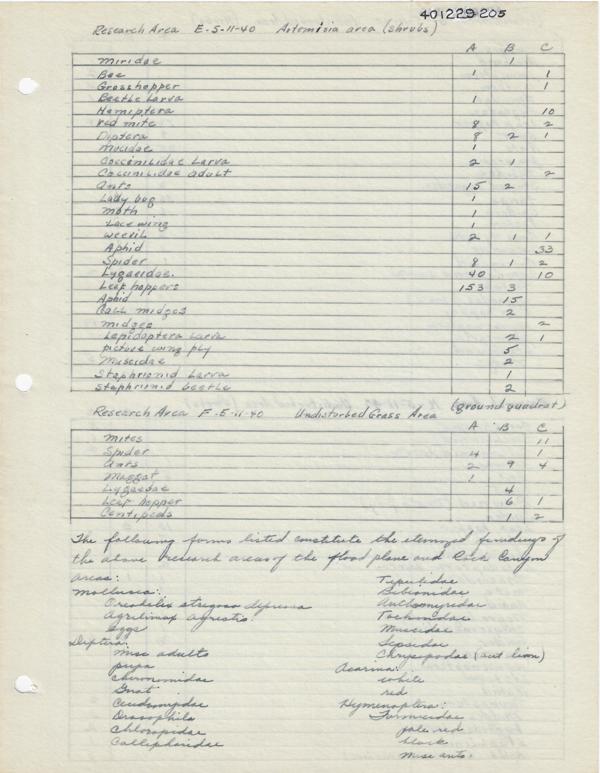 401229 205
Research Area E-5-11-40 Artemisia area (shrubs)
A B C
Miridae 1
Bee 1 1
Grasshopper 1
Beetle Larva 1
Hemiptera 10
red mite 8 2
Diptera 8 2 1
Mucidae 1
Coccinilidae Larva 2 1
Coccinilidae adult 2
ants 15 2
Lady bug 1
moth 1
Lace wing 1
weevil 2 1 1
Aphid 33
Spider 8 1 2
Lygaeidae. 40 10
Leaf hoppers 153 3
Aphid 15
Gall midges 2
midges 2
Lepidoptera Larva 2 1
picture wing fly 5
Muscidae 2
Staphrionid Larva 1
Staphrionid beetle 2
Research Area F-5-11-40 Undisturbed Grass Area (ground quadrat)
A B C
Mites 11
Spider 4 1
ants 2 9 4
Maggot 1
Lygaedae 4
Leaf hopper 6 1
Centipeds 1 2
The following forms listed constitute the itemized of
the above research areas of the flood plane and Rock Canyon
areas:
Mollusca:
Oreohelix strigosa depressa
Agrilimax agrestis
eggs
Diptera:
Misc adults
pupa
chironomidae
Gnat
Drosophila
Chloropidae
Calliphoridae
Tipulidae
Bibionidae
Anthomyidae
Tachinidae
Muscidae
Sepsidae
Chrysopodae (ant lion)
Acarina:
white
red
Hymenoptera:
Formicidae
pale red
black
misc ants.